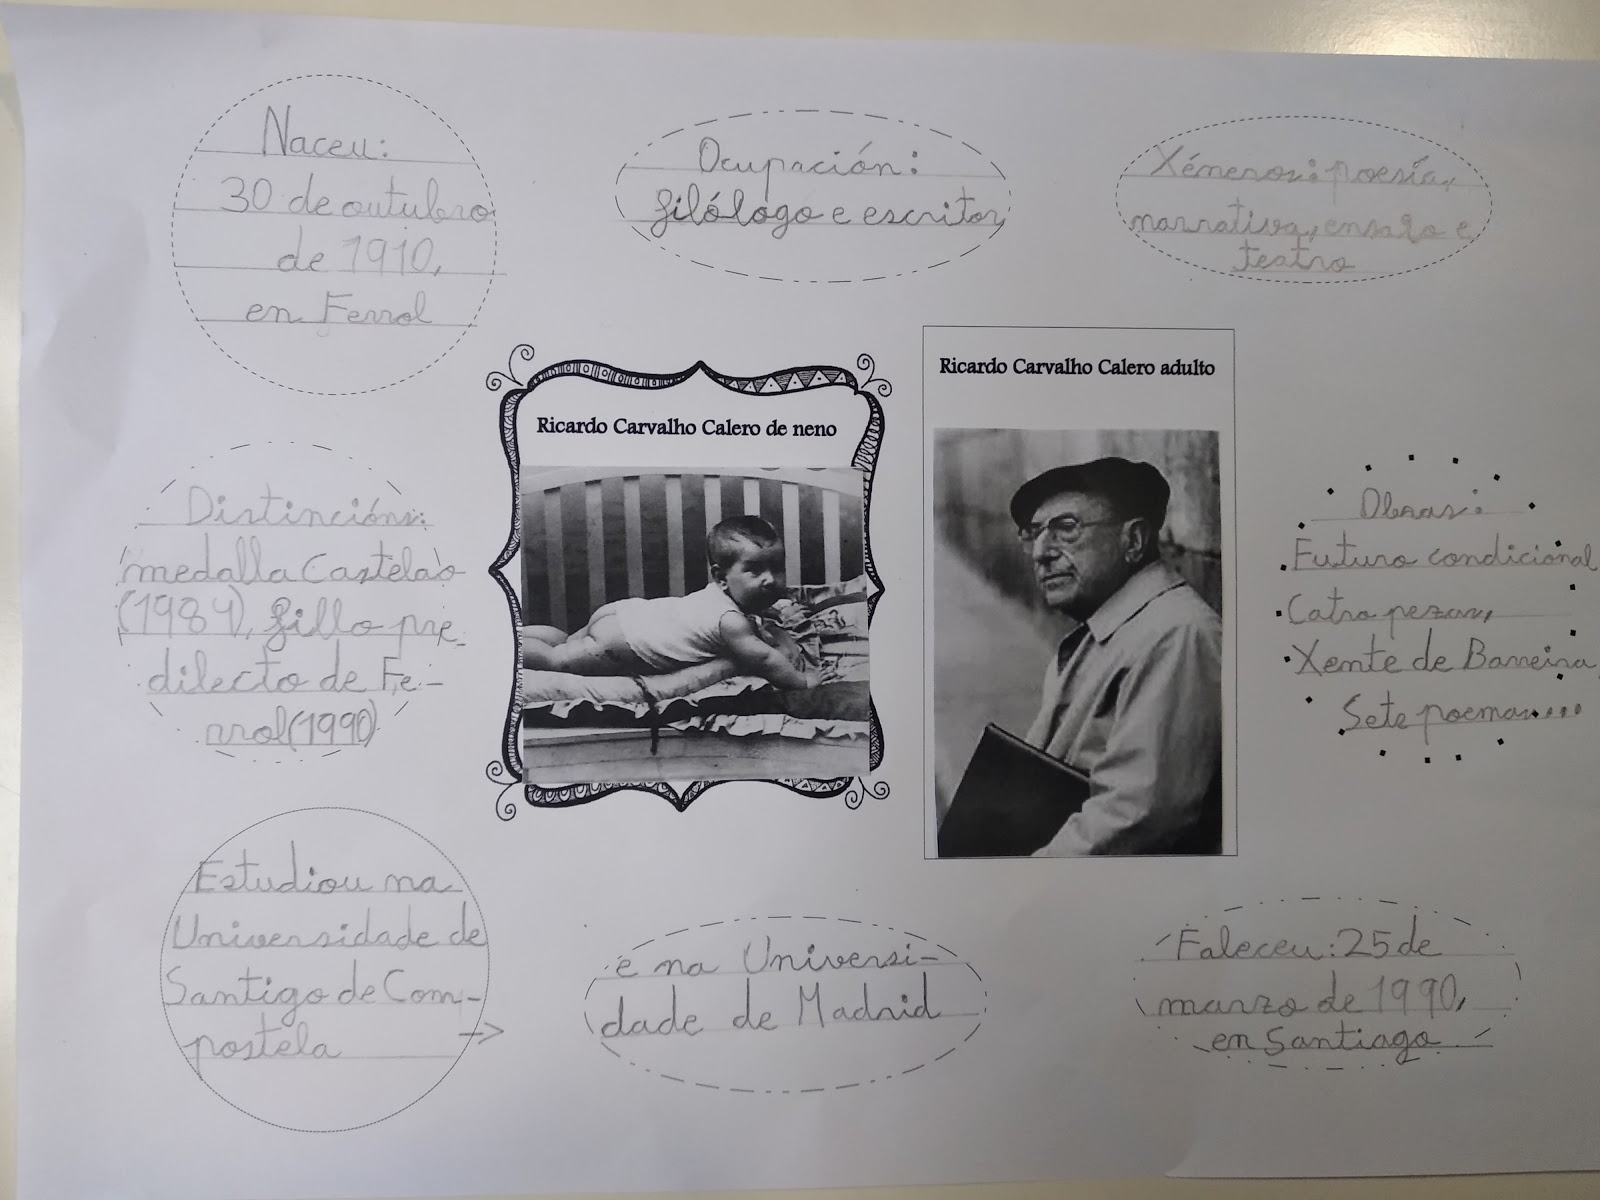 Naceu:
30 de outubro
de 1910,
en Ferrol
Ocupación:
filólogo e escritor
Xéneros: poesía,
narrativa, ensaio e
teatro
Ricardo Carvalho Calero de neno
Ricardo Carvalho Calero adulto
Distincións:
medalla Castelao
(1984), fillo pre-
dilecto de Fe-
rrol (1990)
Obras:
Futuro condicional
Catro pezas,
Xente de Barreira,
Sete poemas...
Estudiou na
Universidade de
Santigo de Com-
postela →
e na Universi-
dade de Madrid
Faleceu: 25 de
marzo de 1990,
en Santiago